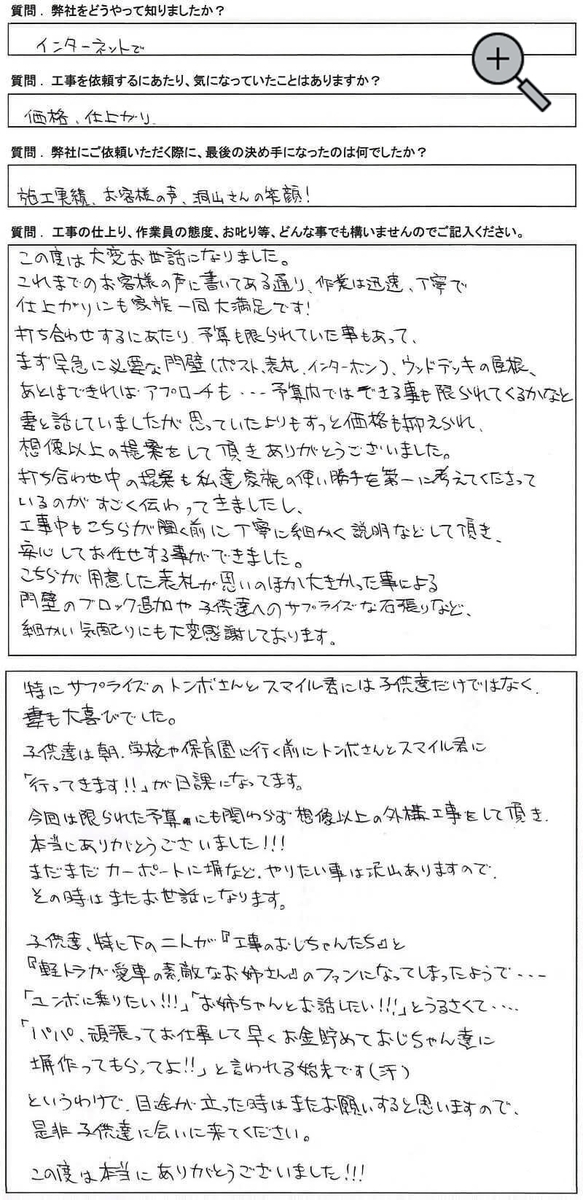 質問．弊社をどうやって知りましたか？
インターネットで
質問．工事を依頼するにあたり、気になっていたことはありますか？
価格、仕上がり
質問．弊社にご依頼いただく際に、最後の決め手になったのは何でしたか？
施工実績、お客様の声、洞山さんの笑顔！
質問．工事の仕上り、作業員の態度、お叱り等、どんな事でも構いませんのでご記入ください。
この度は大変お世話になりました。
これまでのお客様の声に書いてある通り、作業は迅速、丁寧で
仕上がりにも家族一同大満足です！
打ち合わせするにあたり、予算も限られていた事もあって、
まず早急に必要な門壁（ポスト、表札、インターホン）、ウッドデッキの屋根、
あとはできればアプローチも・・・予算内ではできる事も限られてくるかなと
妻と話していましたが思っていたよりもずっと価格も抑えられ、
想像以上の提案をして頂きありがとうございました。
打ち合わせ中の提案も私達家族の使い勝手を第一に考えてくださって
いるのがすごく伝わってきましたし、
工事中もこちらが聞く前に丁寧に細かく説明などして頂き、
安心してお任せする事ができました。
こちらが用意した表札が思いのほか大きかった事による
門壁のブロック追加や子供達へのサプライズな石張りなど、
細かい気配りにも大変感謝しております。
特にサプライズのトンボさんとスマイル君には子供達だけではなく、
妻も大喜びでした。
子供達は朝、学校や保育園に行く前にトンボさんとスマイル君に
「行ってきます！！」が日課になってます。
今回は限られた予算にも関わらず想像以上の外構工事をして頂き、
本当にありがとうございました！！！
まだまだカーポートに塀など、やりたい事は沢山ありますので、
その時はまたお世話になります。
子供達、特に下の二人が『工事のおじちゃんたち』と
『軽トラが愛車の素敵なお姉さん』のファンになってしまったようで・・・
「ユンボに乗りたい！！！」「お姉ちゃんとお話したい！！！」とうるさくて・・・・
「パパ、頑張ってお仕事して早くお金貯めておじちゃん達に
塀作ってもらってよ！！」と言われる始末です（汗）
というわけで、目途が立った時はまたお願いすると思いますので、
是非子供達に会いに来てください。
この度は本当にありがとうございました！！！